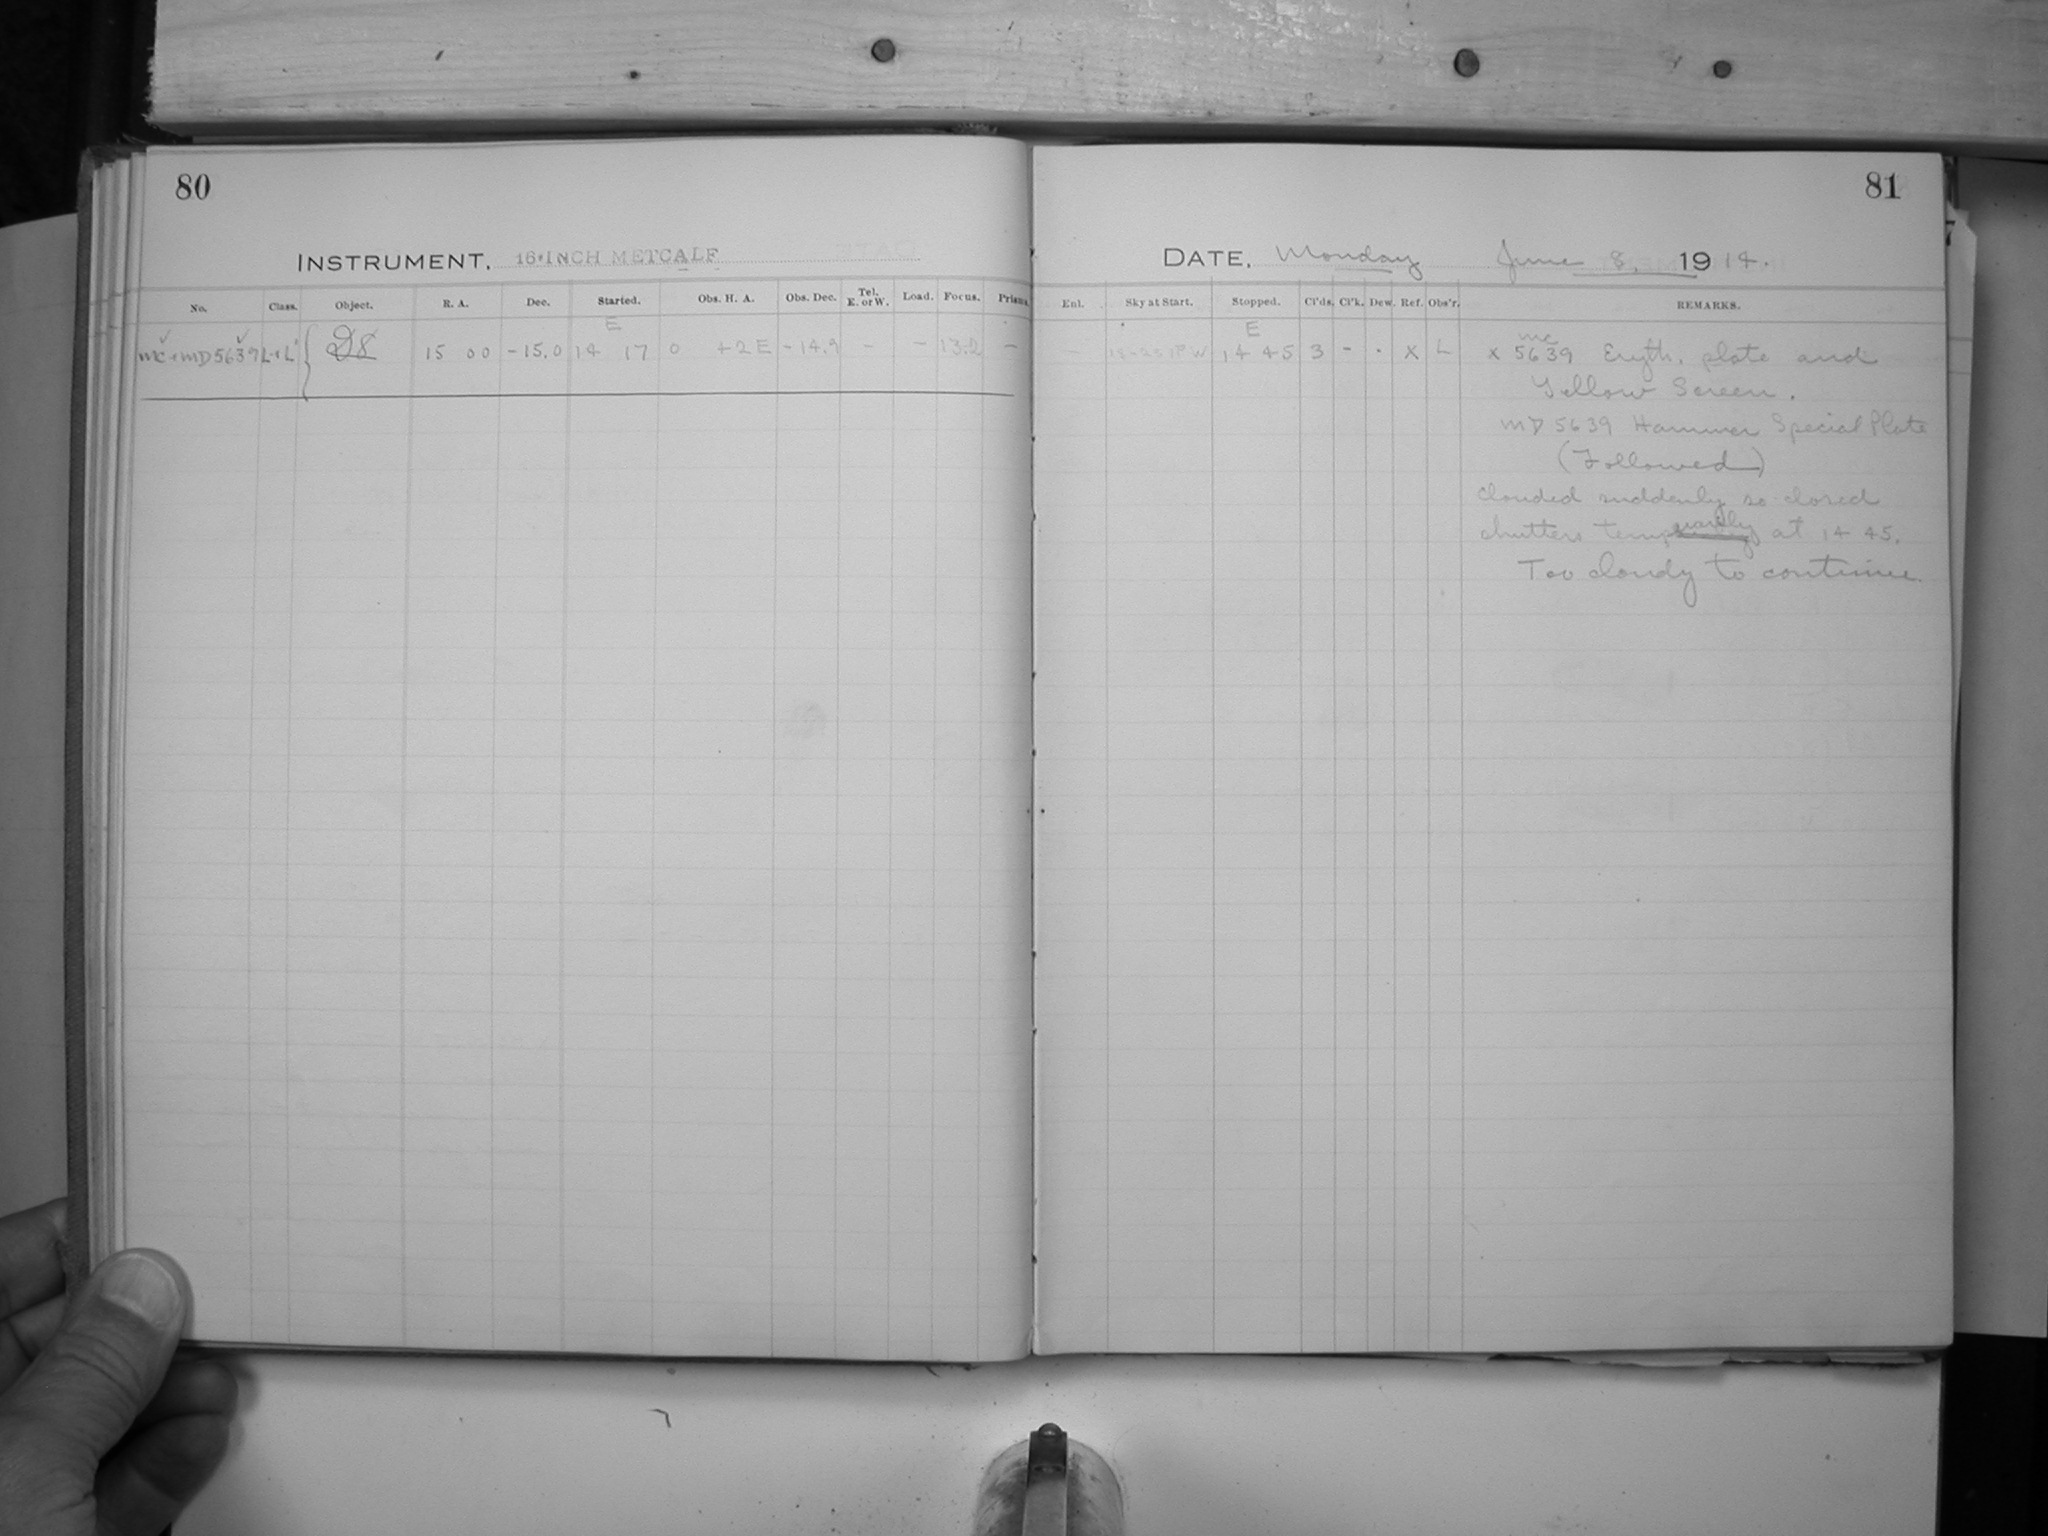 80
INSTRUMENT, 16-INCH METCALF
No. Class. Object. R. A. Dec. Started. Obs. H. A. Obs. Dec. Tel. E. or W. Load. Focus. Prism.
E
MC + MD 5639 L+L' 15 00 -15.0 14 17 0 +2 E -14.9 - - 13.2 -
81
DATE, Monday June 8, 1914.
Enl. Sky at Start. Stopped. Cl'ds. Cl'k. Dew. Ref. Obs'r. REMARKS.
E
14 45 3 - . x L
MC
x 5639 Eryth. plate and
Yellow Screen.
MD 5639 Hammer Special Plate
(Followed)
Clouded suddenly so closed
shutters temporarily at 14 45.
Too cloudy to continue.